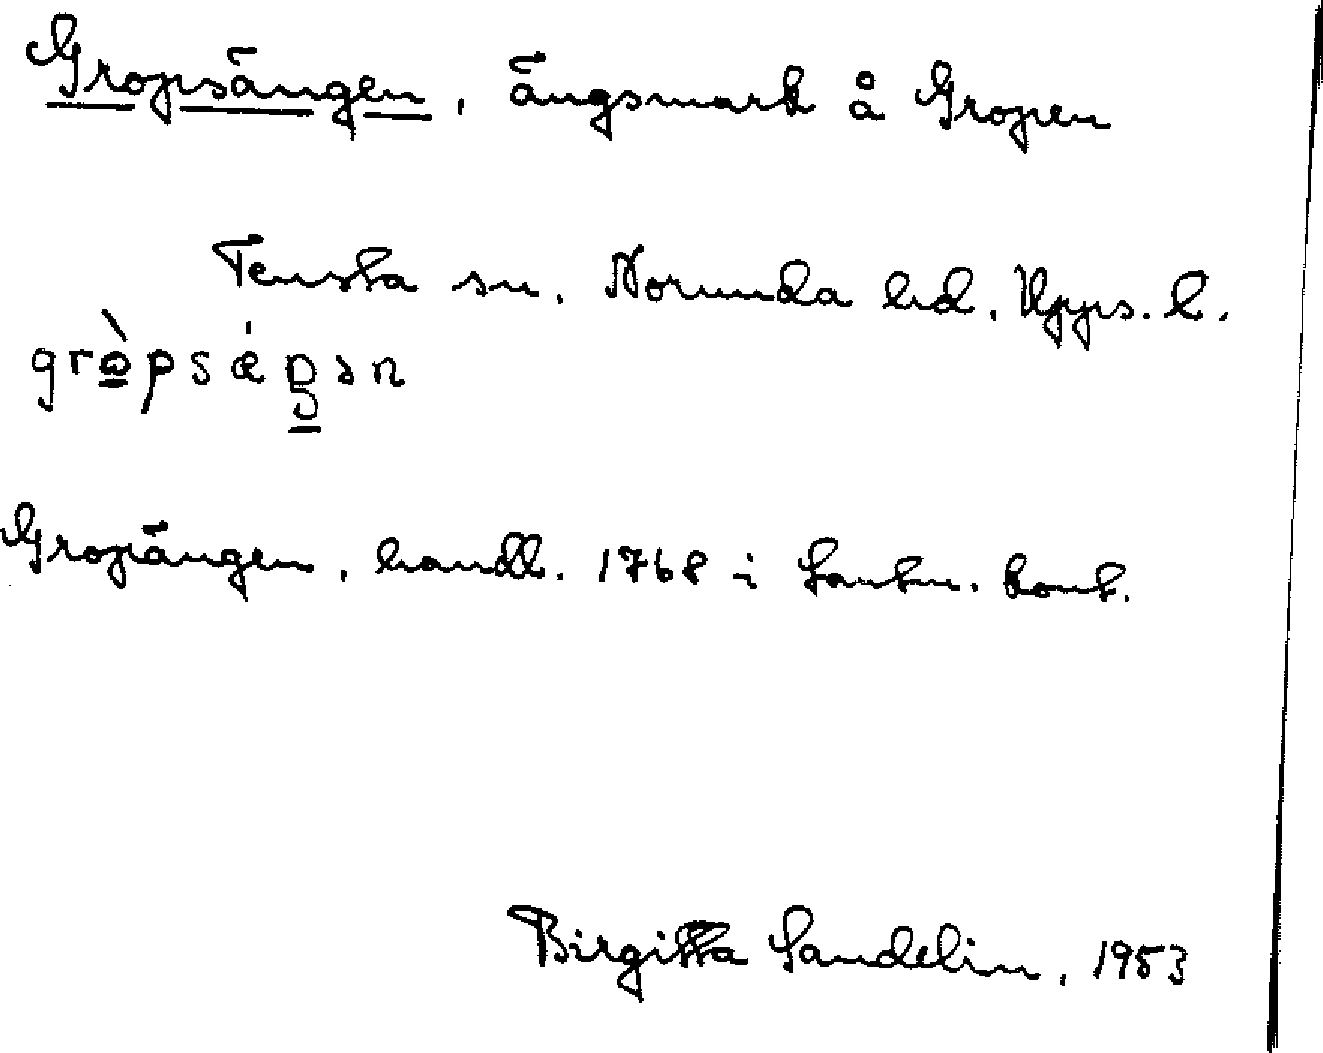 Gropsängen, ängsmark å Gropen
Tensta sn. Norunda hd. Upps. l.
gròpsǽŋən
Gropängen, handl. 1768 i Lantm. kont.
Birgitta Sandelin, 1953